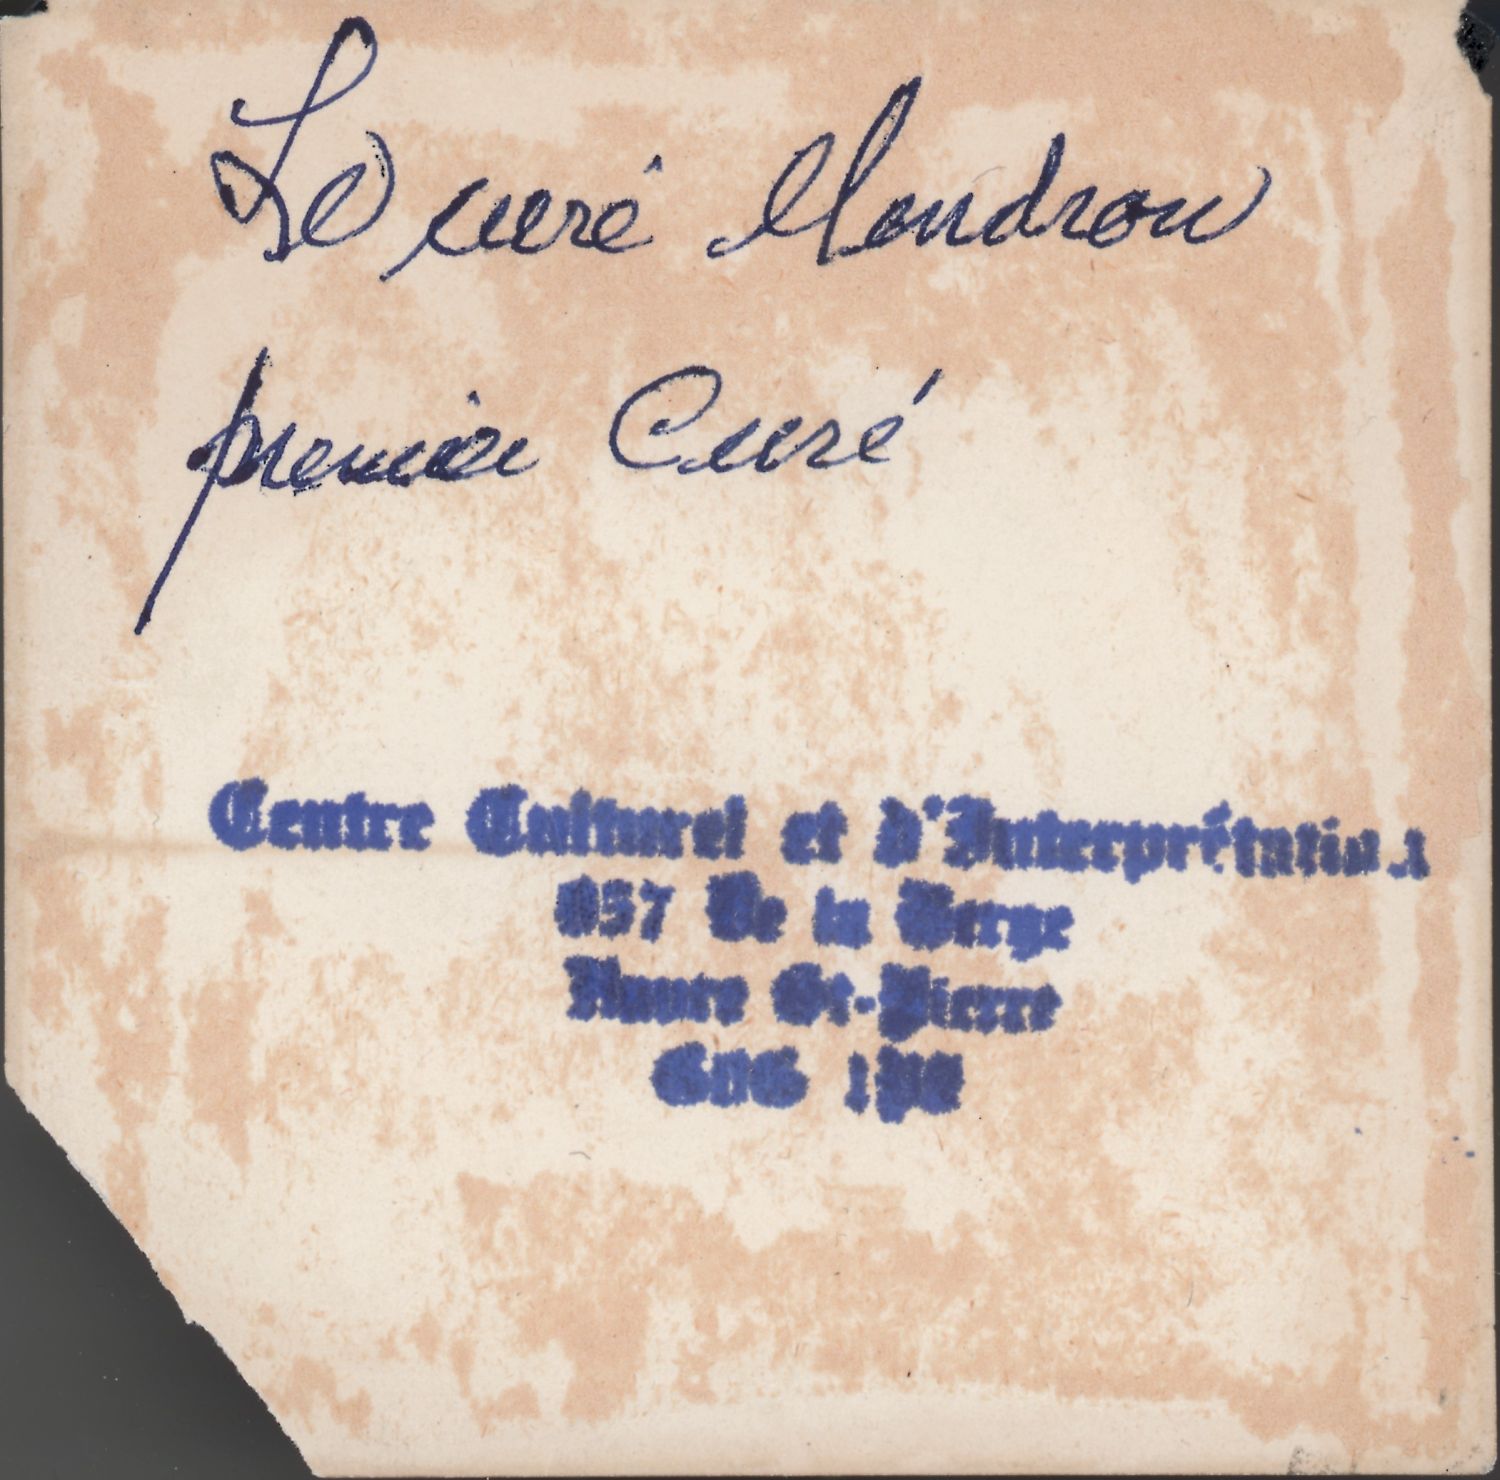 Le curé
premier Curé
Centre Culturel et d'Interprétation
De la Berge
Havre St-Pierre
G0G 1P0